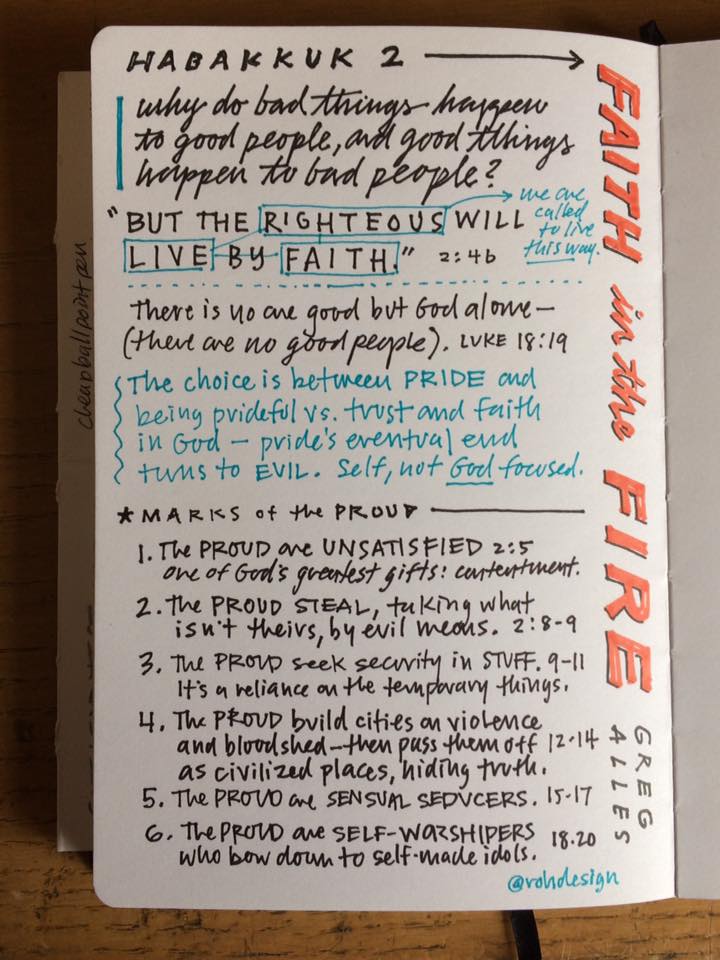 HABAKKUK 2
why do bad things happen
to good people, and good things
happen to bad people?
"BUT THE RIGHTEOUS WILL
LIVE BY FAITH." 2:4b
we are
called
to live
this way.
There is no one good but God alone—
(there are no good people). LUKE 18:19
The choice is between PRIDE and
being prideful vs. trust and faith
in God – pride's eventual end
turns to EVIL. Self, not God focused.
★ MARKS of the PROUD
1. The PROUD are UNSATISFIED 2:5
one of God's greatest gifts: contentment.
2. The PROUD STEAL, taking what
isn't theirs, by evil means. 2:8-9
3. The PROUD seek security in STUFF. 9-11
It's a reliance on the temporary things.
4. The PROUD build cities on violence
and bloodshed—then pass them off 12-14
as civilized places, hiding truth.
5. The PROUD are SENSUAL SEDUCERS. 15-17
6. The PROUD are SELF-WORSHIPERS 18-20
who bow down to self-made idols.
@rohdesign
FAITH in the FIRE
GREG
ALLES
cheap ballpoint pen